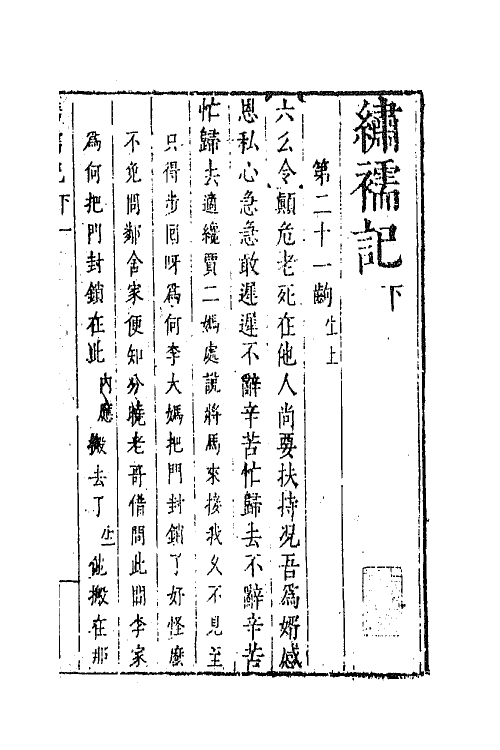 繡襦記 下
第二十一齣 生上
六么令顛危老死在他人尚要扶持况吾爲婿感
恩私心急急敢遲遲不辭辛苦忙歸去不辭辛苦
忙歸去適纔賈二媽處説將馬來接我又不見至
只得步囘呀爲何李大媽把門封鎖了好怪麽
不免問鄰舍家便知分曉老哥借問此間李家
爲何把門封鎖在此 内應 搬去了 生 他搬在那
記下一